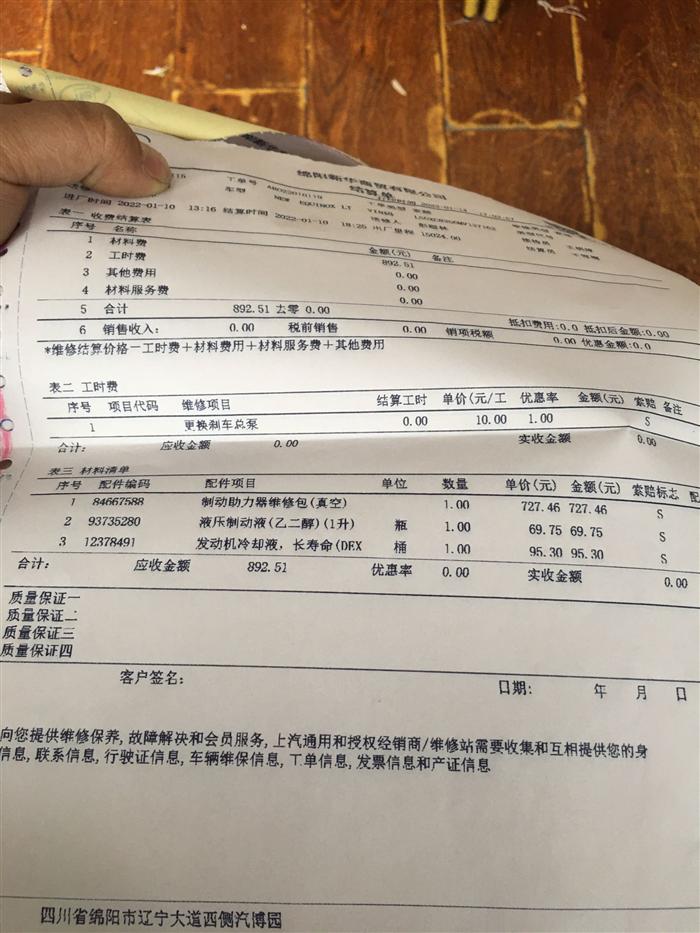 绵阳新华商贸有限公司
结算单
工单号
车型 NEW EQUINOX LT
进厂时间 2022-01-10 13:16 结算时间 2022-01-10 18:25 出厂里程 15024.00
表一 收费结算表
序号 名称 金额(元) 备注
1 材料费 892.51
2 工时费 0.00
3 其他费用 0.00
4 材料服务费 0.00
5 合计 892.51 去零 0.00 抵扣费用:0.0 抵扣后金额:0.00
6 销售收入: 0.00 税前销售 0.00 销项税额 0.00 优惠金额:0.0
*维修结算价格=工时费+材料费用+材料服务费+其他费用
表二 工时费
序号 项目代码 维修项目 结算工时 单价(元/工 优惠率 金额(元) 索赔 备注
1 更换刹车总泵 0.00 10.00 1.00 S
合计: 应收金额 0.00 实收金额 0.00
表三 材料清单
序号 配件编码 配件项目 单位 数量 单价(元) 金额(元) 索赔标志 配
1 84667588 制动助力器维修包(真空) 1.00 727.46 727.46 S
2 93735280 液压制动液(乙二醇)(1升) 瓶 1.00 69.75 69.75 S
3 12378491 发动机冷却液,长寿命(DEX 桶 1.00 95.30 95.30 S
合计: 应收金额 892.51 优惠率 0.00 实收金额 0.00
质量保证一
质量保证二
质量保证三
质量保证四
客户签名: 日期: 年 月 日
向您提供维修保养,故障解决和会员服务,上汽通用和授权经销商/维修站需要收集和互相提供您的身
信息,联系信息,行驶证信息,车辆维保信息,工单信息,发票信息和产证信息
四川省绵阳市辽宁大道西侧汽博园